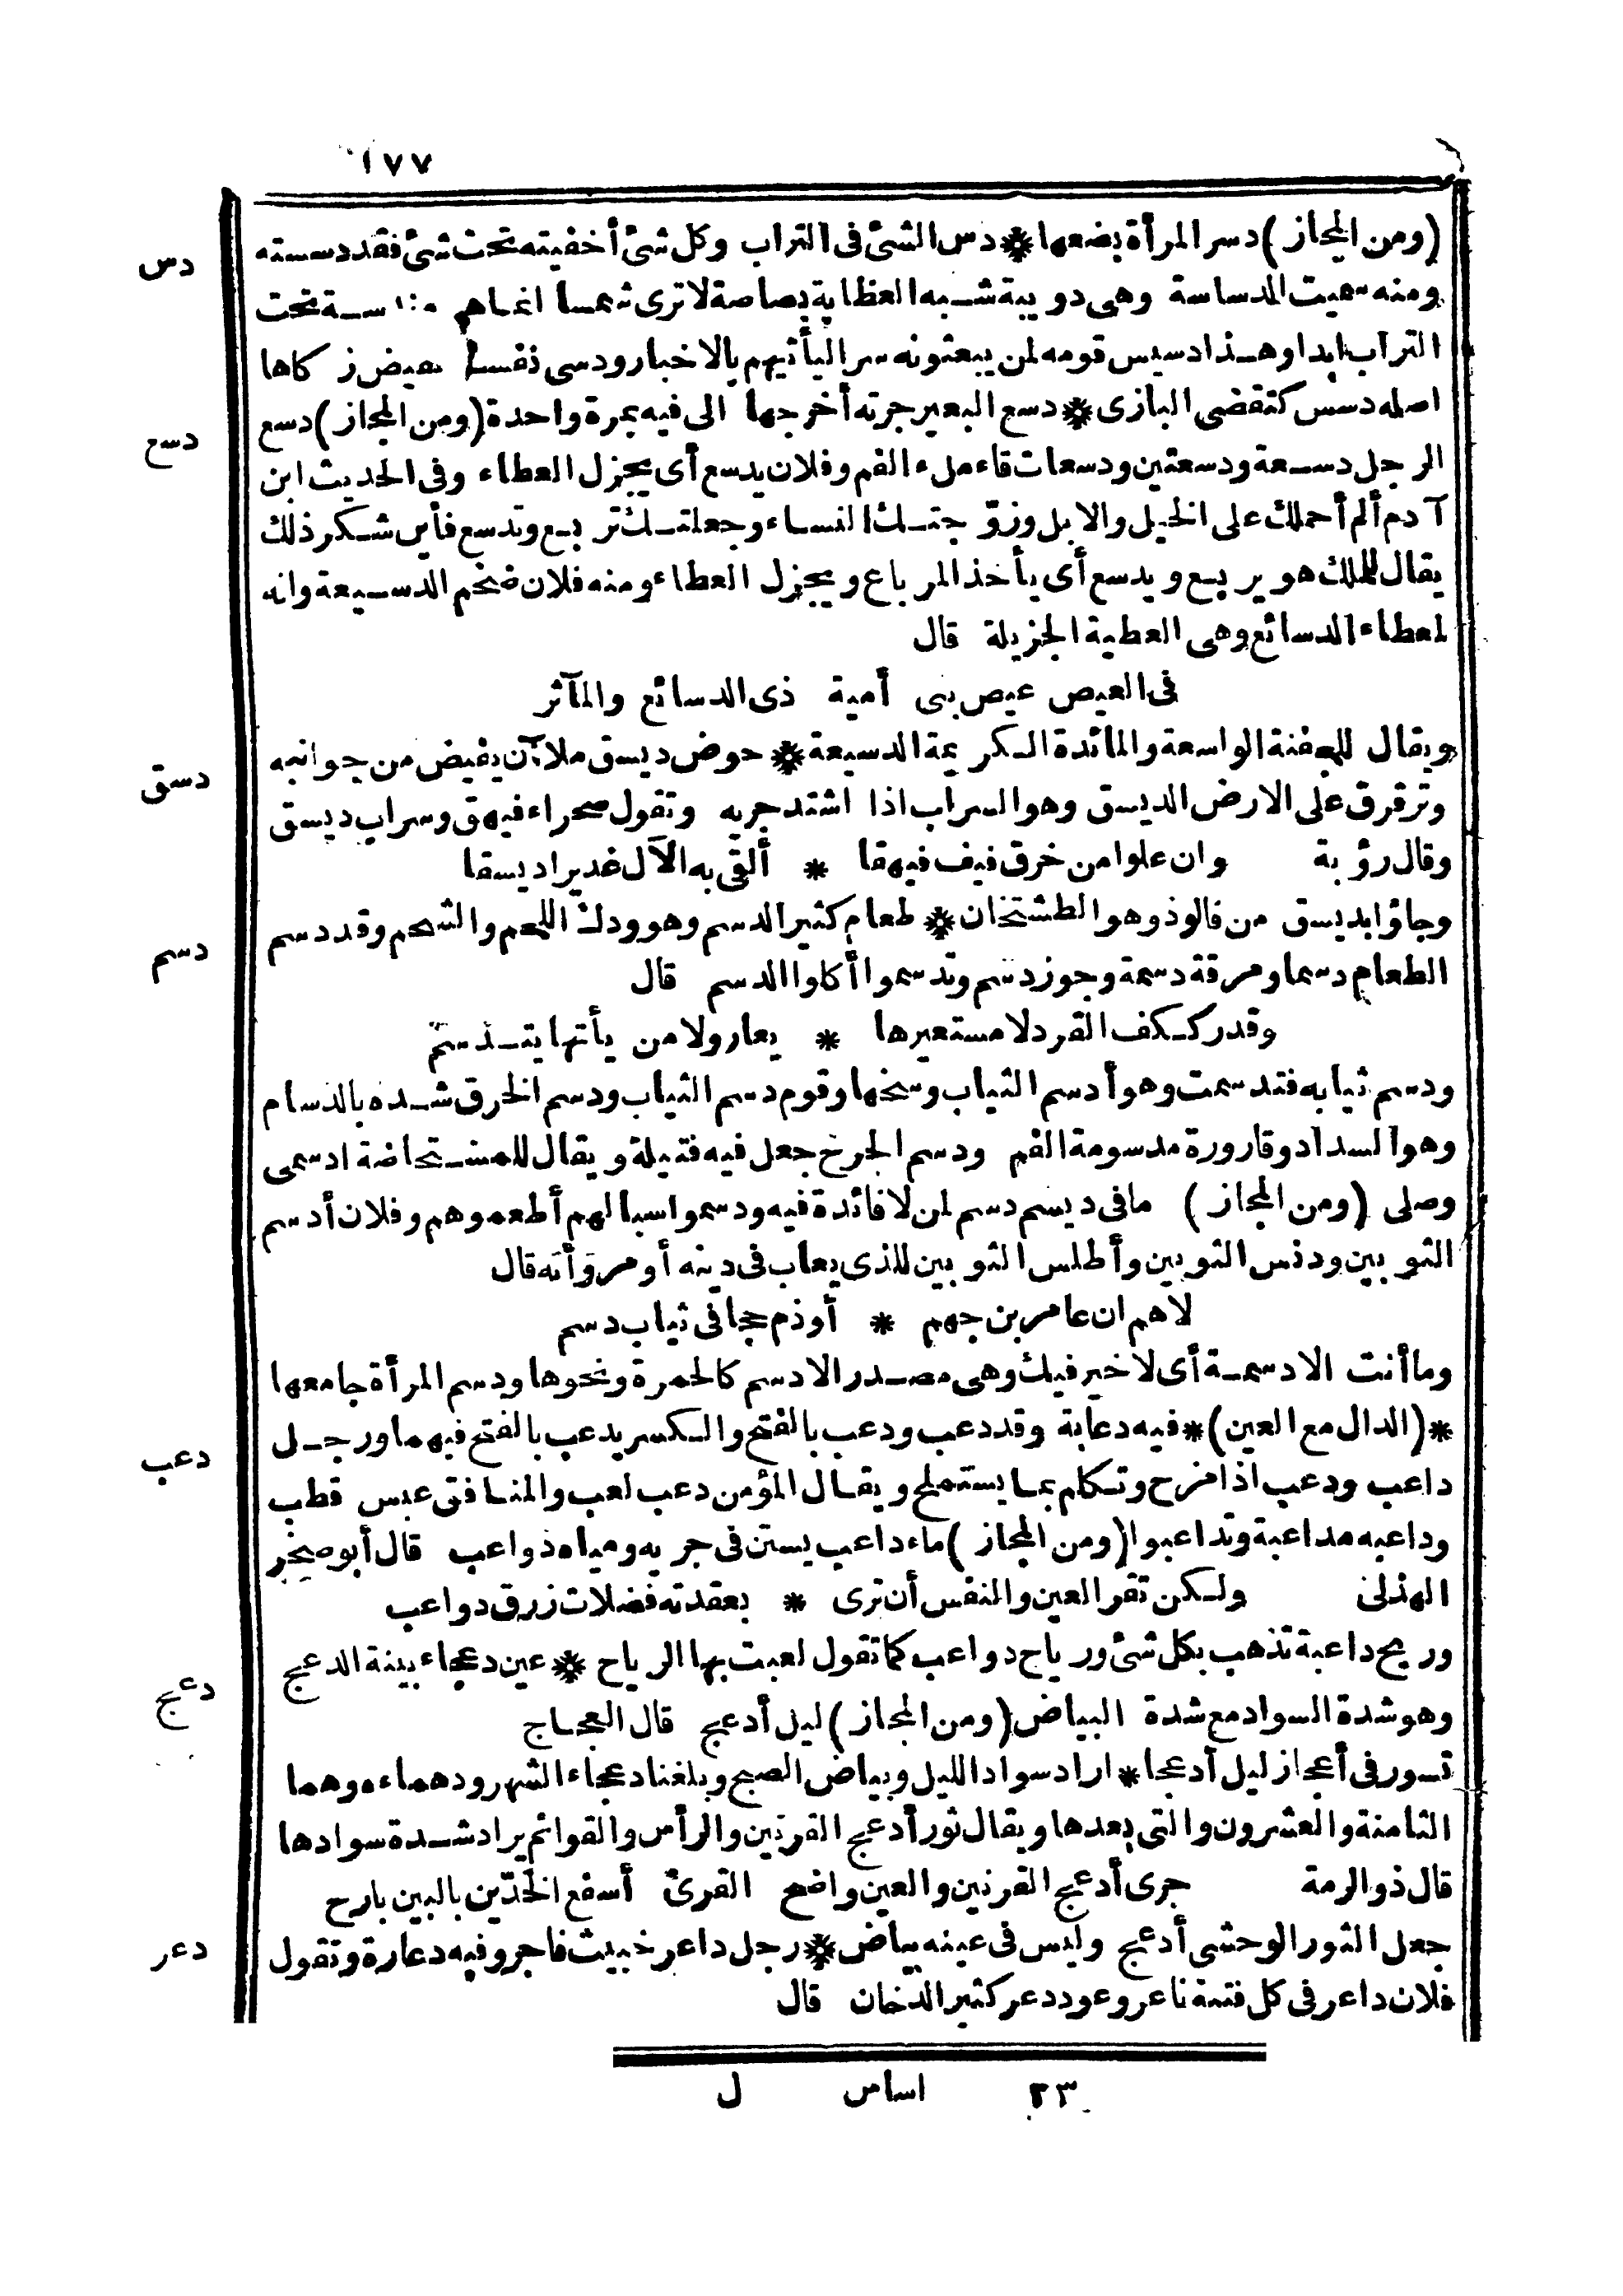 ١٧٧
(ومن المجاز) دسر المرأة بضعها * دس الشئ فى التراب وكل شئ أخفيته تحت شئ فقد دسسته
دس
ومنه سميت الدساسة وهى دويبة شبه العظاية بصاصة لا ترى شمسا انما هى تحت
التراب ابدا وهذا دسيس قومه لمن يبعثونه سرا ليأتيهم بالاخبار ودسى نفسه نقيض زكاها
اصله دسس كتقضى البازى * دسع البعير جرته أخرجها الى فيه بمرة واحدة (ومن المجاز) دسع
دسع
الرجل دسعة ودسعتين ودسعات قاء ملء الفم وفلان يدسع أى يجزل العطاء وفى الحديث ابن
آدم ألم أحملك على الخيل والابل وزوّجتك النساء وجعلتك تربع وتدسع فأين شكر ذلك
يقال للملك هو يربع ويدسع أى يأخذ المرباع ويجزل العطاء ومنه فلان ضخم الدسيعة وانه
لمعطاء الدسائع وهى العطية الجزيلة قال
فى العيص عيص بنى أمية ذى الدسائع والمآثر
ويقال للجفنة الواسعة والمائدة الكريمة الدسيعة * حوض ديسق ملآن يفيض من جوانبه
دسق
وترقرق على الارض الديسق وهو السراب اذا اشتد جريه وتقول صحراء فيهق وسراب ديسق
وقال رؤبة وان علوا من خرق فيف فيهقا * ألقى به الآل غديرا ديسقا
وجاؤا بديسق من فالوذ وهو الطشتخان * طعام كثير الدسم وهو ودك اللحم والشحم وقد دسم
دسم
الطعام دسما ومرقة دسمة وجوز دسم وتدسموا أكلوا الدسم قال
وقدر ككف القرد لا مستعيرها * يعار ولا من يأتها يتدسم
ودسم ثيابه فتدسمت وهو أدسم الثياب وسخها وقوم دسم الثياب ودسم الخرق شده بالدسام
وهو السداد وقارورة مدسومة الفم ودسم الجرح جعل فيه فتيلة ويقال للمستحاضة ادسمى
وصلى (ومن المجاز) ما فى ديسم دسم لمن لا فائدة فيه ودسموا سبالهم أطعموهم وفلان أدسم
الثوبين ودنس الثوبين وأطلس الثوبين للذى يعاب فى دينه أو مروأته قال
لاهم ان عامر بن جهم * أوذم حجا فى ثياب دسم
وما أنت الا دسمة أى لا خير فيك وهى مصدر الادسم كالحمرة ونحوها ودسم المرأة جامعها
*(الدال مع العين)* فيه دعابة وقد دعب ودعب بالفتح والكسر يدعب بالفتح فيهما ورجل
دعب
داعب ودعب اذا مزح وتكلم بما يستملح ويقال المؤمن دعب لعب والمنافق عبس قطب
وداعبه مداعبة وتداعبوا (ومن المجاز) ماء داعب يستن فى جريه ومياه دواعب قال أبو صخر
الهذلى ولكن تقر العين والنفس أن ترى * بعقدته فضلات زرق دواعب
وريح داعبة تذهب بكل شئ ورياح دواعب كما تقول لعبت بها الرياح * عين دعجاء بينة الدعج
دعج
وهو شدة السواد مع شدة البياض (ومن المجاز) ليل أدعج قال العجاج
تسور فى أعجاز ليل أدعجا * اراد سواد الليل وبياض الصبح وبلغنا دعجاء الشهر ودهماءه وهما
الثامنة والعشرون والتى بعدها ويقال ثور أدعج القرنين والرأس والقوائم يراد شدة سوادها
قال ذو الرمة جرى أدعج القرنين والعين واضح القرئ أسفع الخدّين بالبين بارح
جعل الثور الوحشى أدعج وليس فى عينه بياض * رجل داعر خبيث فاجر وفيه دعارة وتقول
دعر
فلان داعر فى كل فتنة ناعر وعود دعر كثير الدخان قال
٢٣ اساس ل